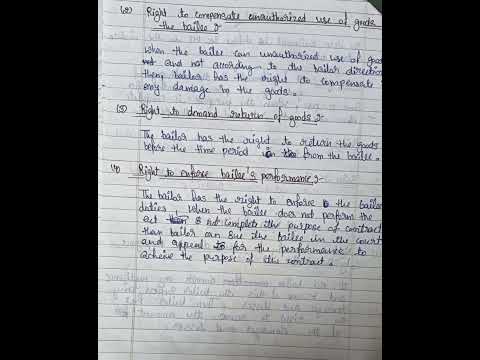 (2) Right to compensate unauthorized use of goods
the bailee :-
when the bailee can unauthorized use of goods
and not according to the bailor direction
then bailor has the right to compensate
any damage to the goods.
(3) Right to demand return of goods :-
The bailor has the right to return the goods
before the time period from the bailee.
Right to enforce bailee's performance :-
The bailor has the right to enforce the bailee
duties, when the bailee does not perform the
act not complete the purpose of contract
then bailor can sue the bailee in the court
and appeal for the performance to
achieve the purpose of the contract.